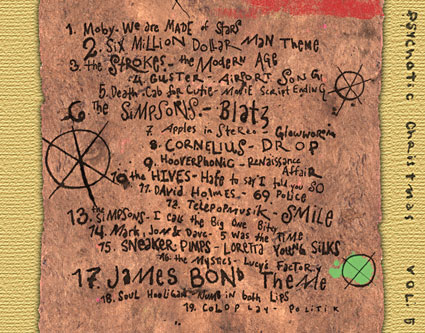 1. Moby- We are MADE of Stars
2. Six Million Dollar Man Theme
3. the STROKES - the Modern Age
4. GUSTER - AiRPORT SONG
5. Death Cab for Cutie - Movie Script Ending
6 The SiMPSONS.- Blatz
7. Apples in Stereo Glowworm
8. CORNELIUS- DROP
9. HOOVERPHONIC - RENaissance Affair
10 the HIVES- Hate to say I told you SO
11. DAVID HOLMES- 69 Police
12. Telepopmusik - SMiLE
13. the SiMPSONS- I Call the Big One Bitey
14. Mark, Jon & Dave- 5 Was the TIME
15. SNEAKER PIMPS - LORETTA YOUNG SiLKS
16. the Mystics- Lucys FACTORY
17. JAMES BOND THeMe
18. Soul Hooligan- Numb in both Lips
19. COLDPLAY- POLiTiK
PSYCHOTIC Christmas VOL. 5